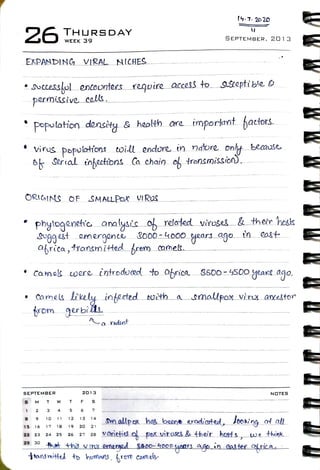 14.7.2020
11
26 THURSDAY
WEEK 39
SEPTEMBER, 2013
EXPANDING VIRAL NICHES
• successful encounters require access to susceptible &
permissive cells.
• population density & health are important factors
• virus populations will endure in nature only because
of serial infections (a chain of transmission).
ORIGINS OF SMALLPOX VIRUS
• phylogenetic analysis of related viruses & their hosts
suggest emergence 3000-4000 years ago in east
africa, transmitted from camels.
• Camels were introduced to Africa 3500-4500 years ago.
• Camels likely infected with a smallpox virus ancestor
from gerbils
a rodent
SEPTEMBER 2013
NOTES
S M T W T F S
1 2 3 4 5 6 7
8 9 10 11 12 13 14
15 16 17 18 19 20 21
22 23 24 25 26 27 28
29 30
Smallpox has been eradicated, looking at all
varieties of pox viruses & their hosts, we think
that this virus emerged 3000-4000 years ago in easter africa.
transmitted to humans from camels